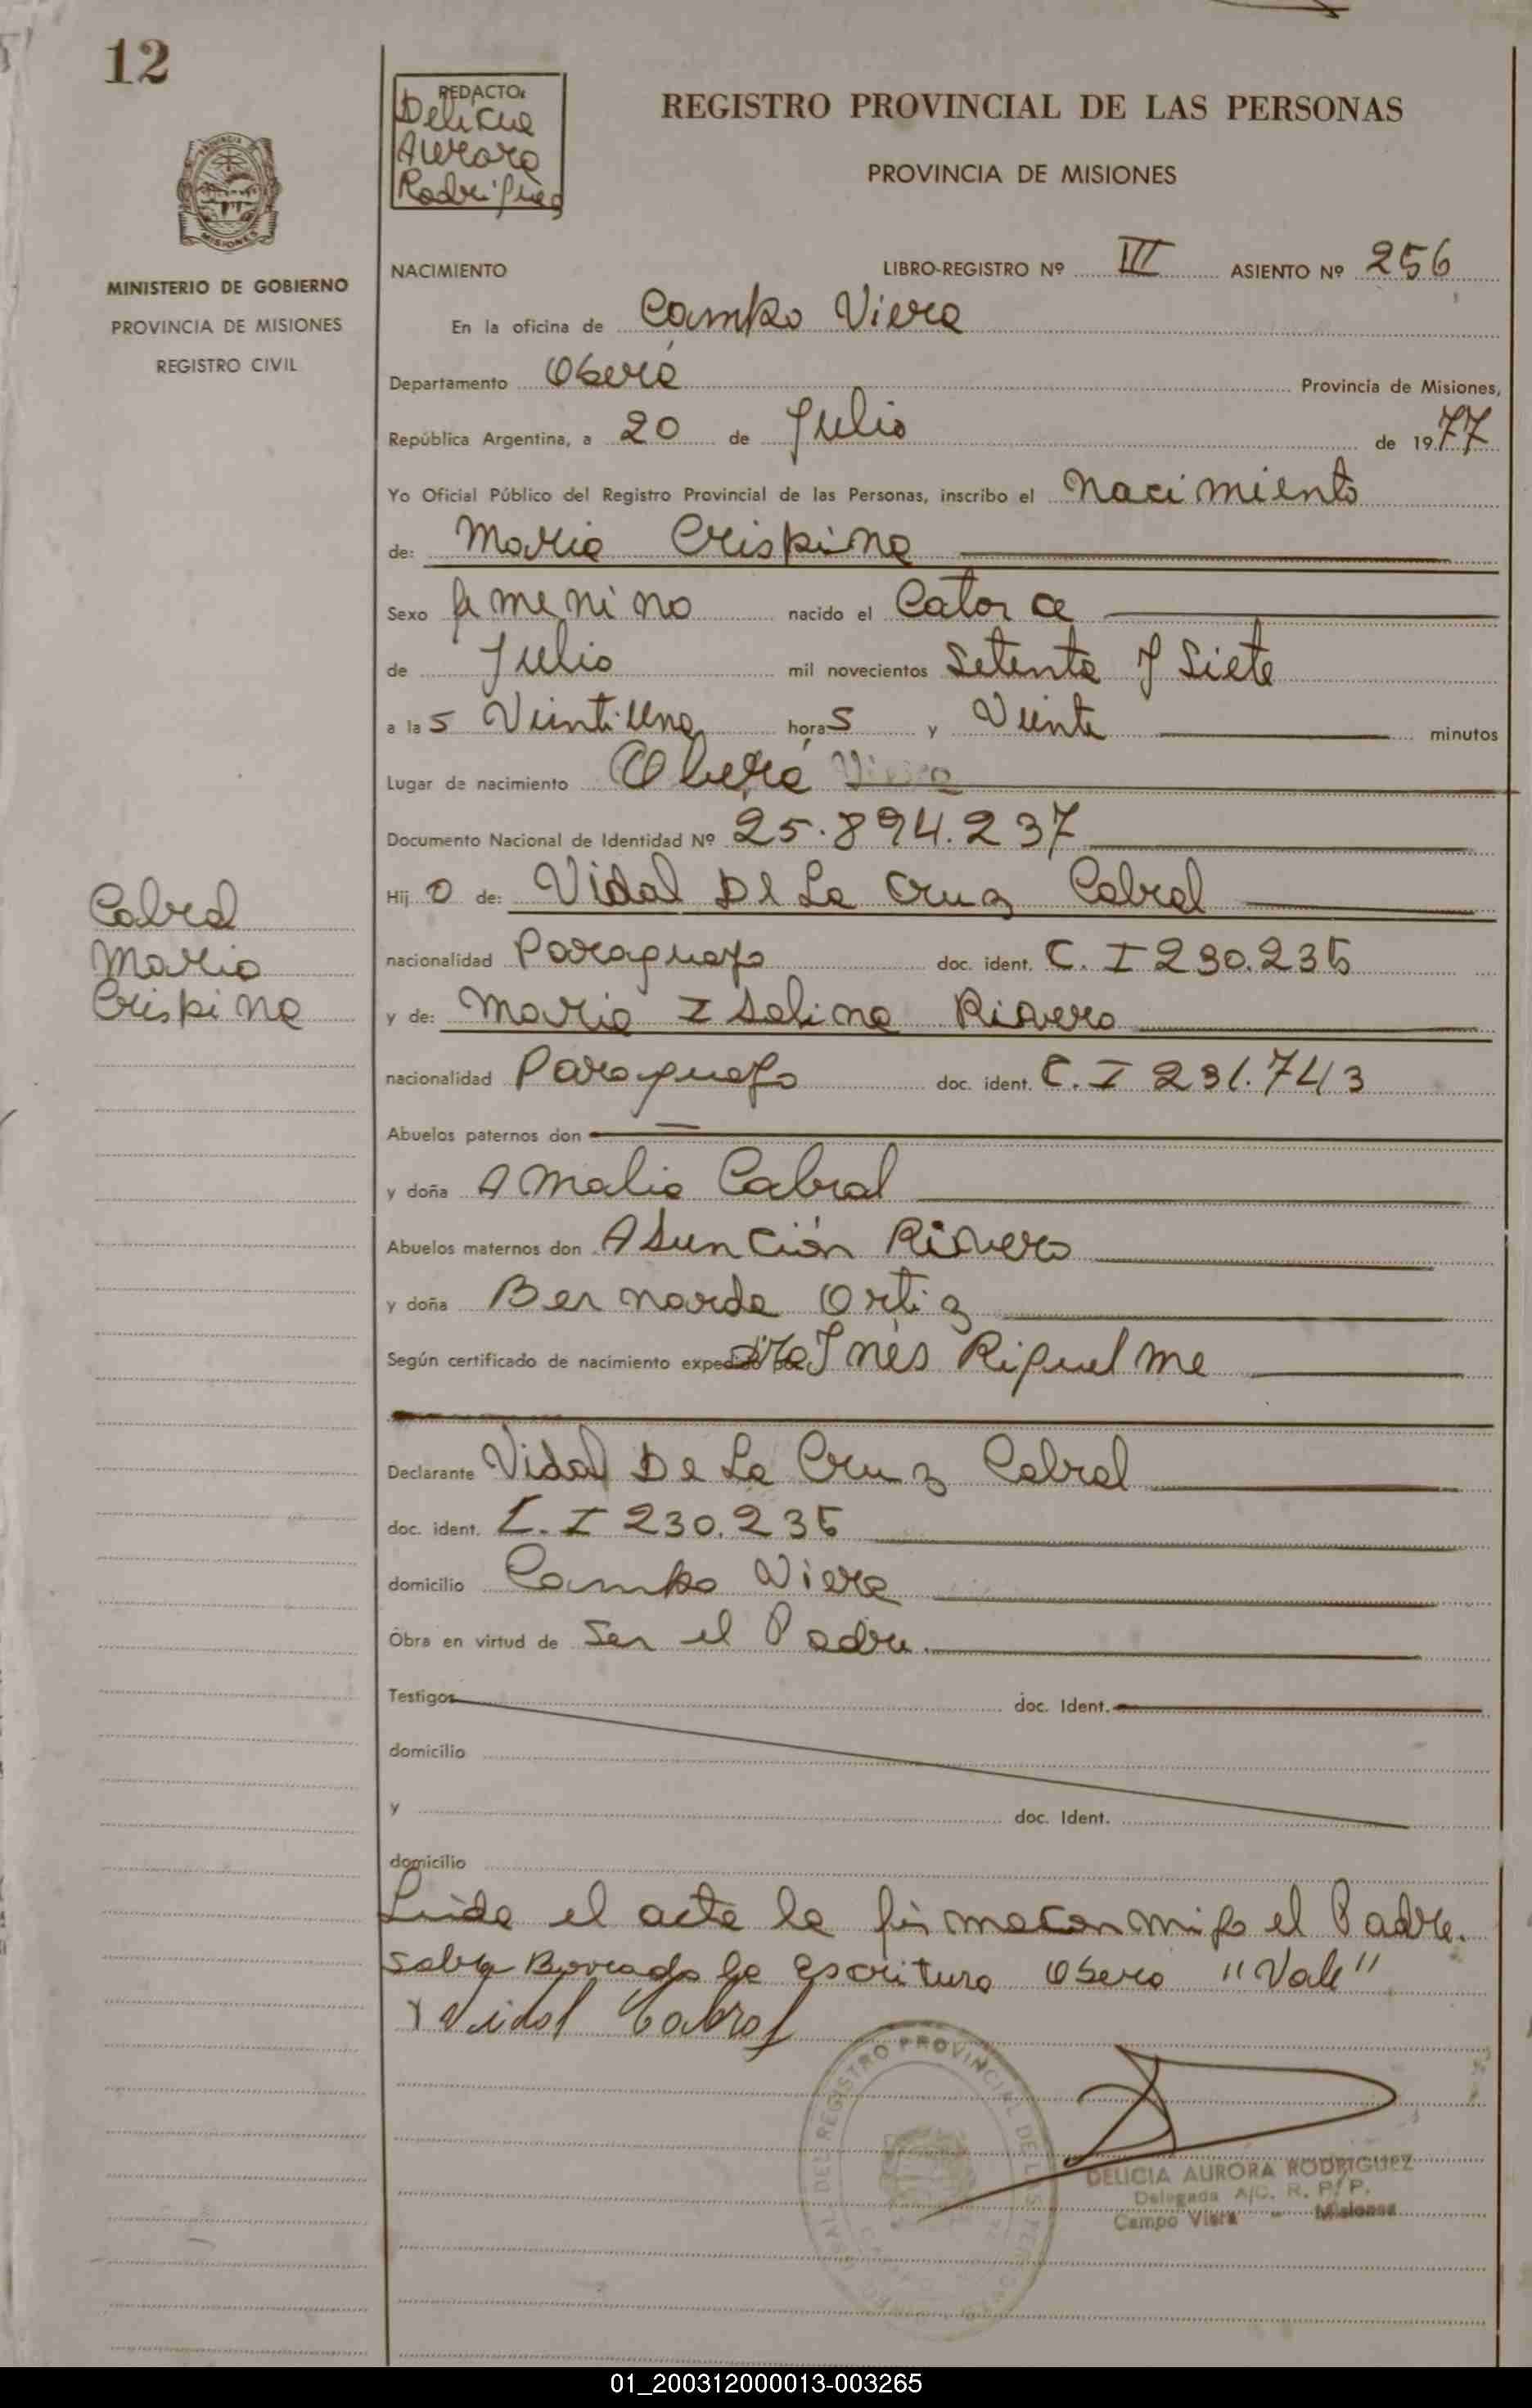 12
REDACTO:
Delicia
Aurora
Rodriguez
REGISTRO PROVINCIAL DE LAS PERSONAS
PROVINCIA DE MISIONES
MINISTERIO DE GOBIERNO
PROVINCIA DE MISIONES
REGISTRO CIVIL
NACIMIENTO LIBRO-REGISTRO Nº III ASIENTO Nº 256
En la oficina de Campo Viera
Departamento Oberá Provincia de Misiones,
República Argentina, a 20 de Julio de 1977
Yo Oficial Público del Registro Provincial de las Personas, inscribo el Nacimiento
de: Maria Crispina
Sexo femenino nacido el Catorce
de Julio mil novecientos Setenta y Siete
a las Veintiuna horas y Veinte minutos
Lugar de nacimiento Oberá
Documento Nacional de Identidad Nº 25.894.237
Hijo de: Vidal De La Cruz Cabral
nacionalidad Paraguayo doc. ident. C. I 230.235
Cabral
Maria
Crispina
y de: Maria Isolina Rivero
nacionalidad Paraguaya doc. ident. C. I 231.743
Abuelos paternos don
y doña Amalia Cabral
Abuelos maternos don Asunción Rivero
y doña Bernarda Ortiz
Según certificado de nacimiento Inés Riquelme
Declarante Vidal De La Cruz Cabral
doc. ident. C. I 230.235
domicilio Campo Viera
Obra en virtud de Ser el Padre.
Testigos doc. Ident.
domicilio
y doc. Ident.
domicilio
Leida el acta la firma conmigo el Padre.
Sobre Borrado la escritura Obera "Vale"
Vidal Cabral
REGISTRO PROVINCIAL DE LAS PERSONAS
DELICIA AURORA RODRIGUEZ
Delegada A/C. R. P/P.
Campo Viera - Misiones
01_200312000013-003265